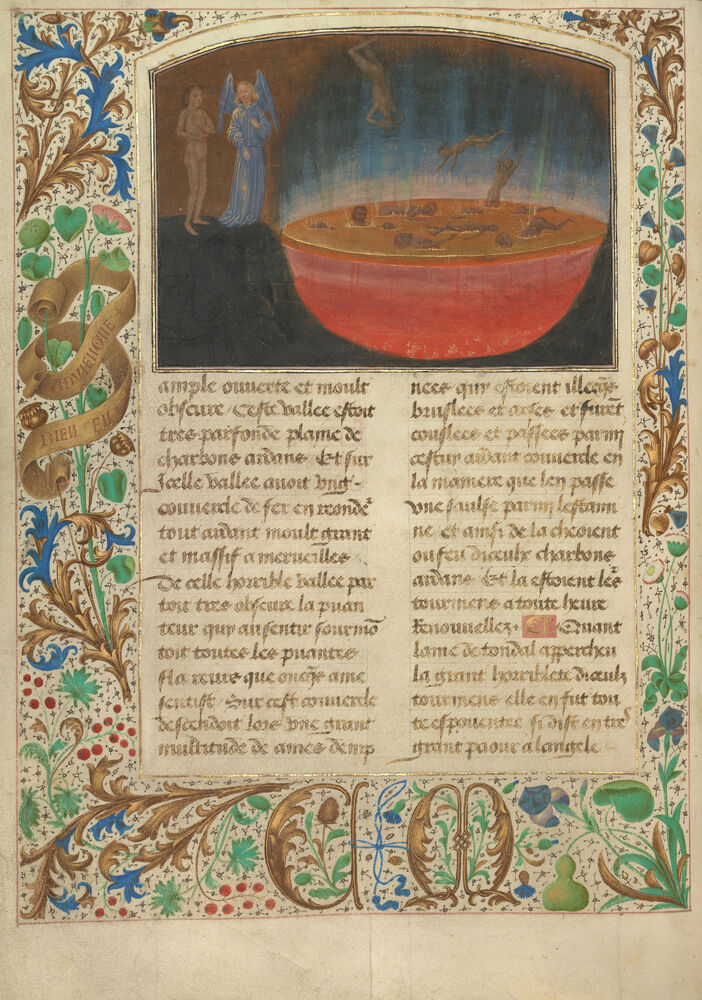 BIEN EN
ADVIENGNE
ample ouverte et moult
obscure / Ceste vallee estoit
tres parfonde plaine de
charbons ardans · Et sur
Jcelle vallee avoit vng
couvercle de fer en ronde
tout ardant moult grant
et massif a merveilles
De celle horrible vallee par
toit tres obscure la puan
teur qui ausentir sourmō
toit toutes les puantes
fla
sentist · Sur cest couvercle
desendoit lors vne grant
multitude de ames
nees quy estoient illecq̄s
bruslees et arses et furēt
coullees et passees parmi
cestui ardant couvercle en
la maniere que len passe
vne saulse parmi lestami
ne et ainsi de la cheoient
ou feu diceulx charbons
ardans · Et la estoient les
tourmens a toute heure
Renouvellez · Quant
lame de tondal appercheu
la grant horriblete diceulx
tourmens elle en fut tou
te espouentee si dist en tres
grant paour a langele
C M